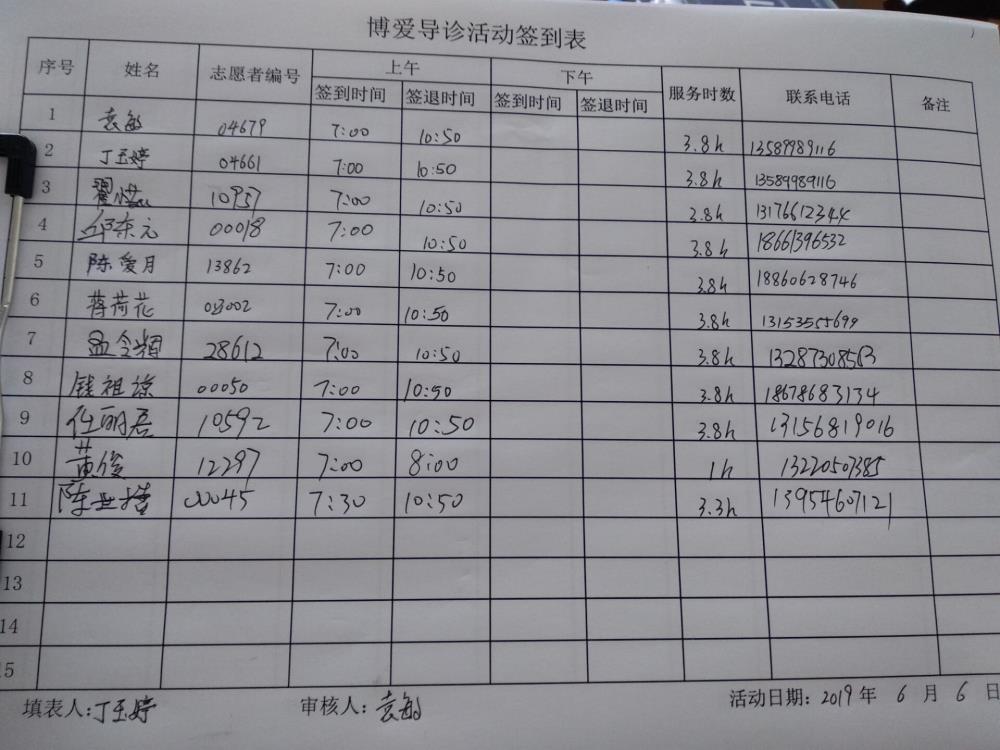 博爱导诊活动签到表
序号 姓名 志愿者编号 上午 下午 服务时数 联系电话 备注
签到时间 签退时间 签到时间 签退时间
1 袁敏 04679 7:00 10:50 3.8h 13589989116
2 丁玉婷 04661 7:00 10:50 3.8h 13589989116
3 10937 7:00 10:50 3.8h 13176612344
4 邱东元 00018 7:00 10:50 3.8h 18661396532
5 陈爱月 13862 7:00 10:50 3.8h 18860628746
6 蒋荷花 7:00 10:50 3.8h 13153555699
7 28612 7:00 10:50 3.8h
8 钱祖琼 00050 7:00 10:50 3.8h 18678683134
9 任丽君 10592 7:00 10:50 3.8h 13156819016
10 黄俊 12297 7:00 8:00 1h 13220507385
11 00045 7:30 10:50 3.3h 13954607121
12
13
14
15
填表人:丁玉婷 审核人:袁敏 活动日期:2019年 6 月 6 日